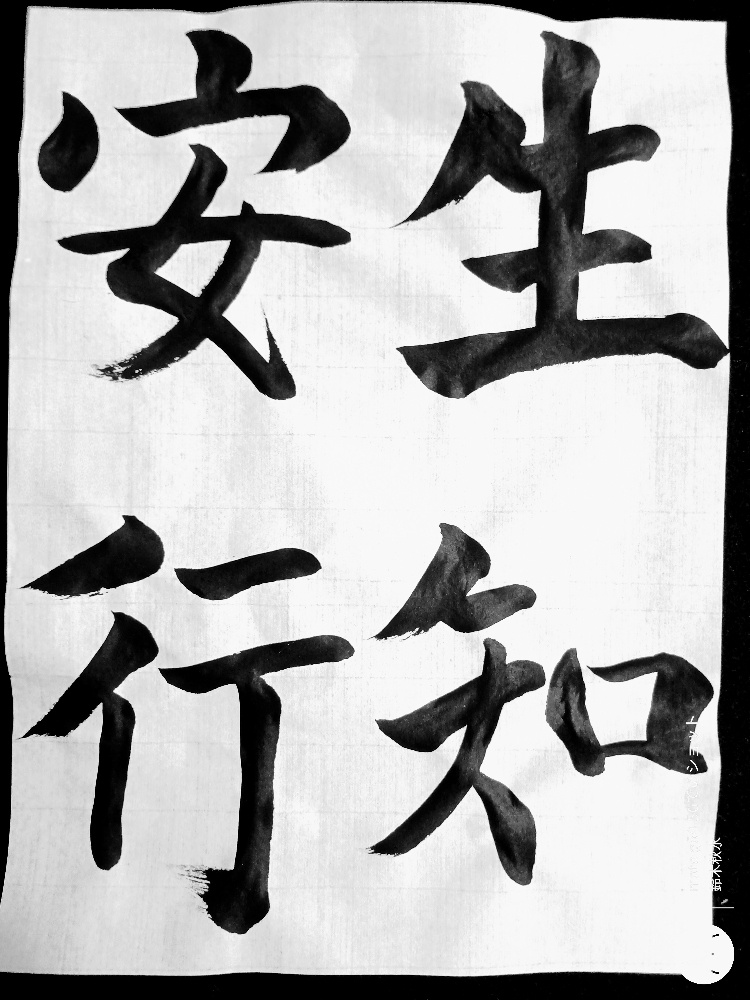 生知
安行